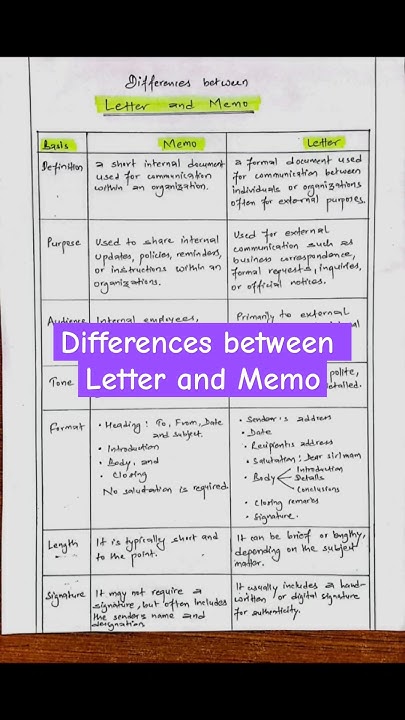 Differences between
Letter and Memo
Basis
Memo
Letter
Definition
a short internal document
used for communication
within an organization.
a formal document used
for communication between
individuals or organizations
often for external purposes.
Purpose
Used to share internal
updates, policies, reminders,
or instructions within an
organizations.
Used for external
communication such as
business correspondence,
formal requests, inquiries,
or official notices.
Audience
Internal employees,
Primarily to external
Differences between
Letter and Memo
Tone
polite,
detailed.
Format
• Heading: To, From, Date
and subject
• Introduction
• Body, and
• Closing
No salutation is required
• Sender's address
• Date
• Recipient's address
• Salutation: Dear sir/mam
• Body
Introduction
Details
Conclusions
• Closing remarks
• Signature.
Length
It is typically short and
to the point.
It can be brief or lengthy,
depending on the subject
matter.
Signature
It may not require a
signature, but often includes
the sender's name and
designation
It usually includes a hand-
written or digital signature
for authenticity.